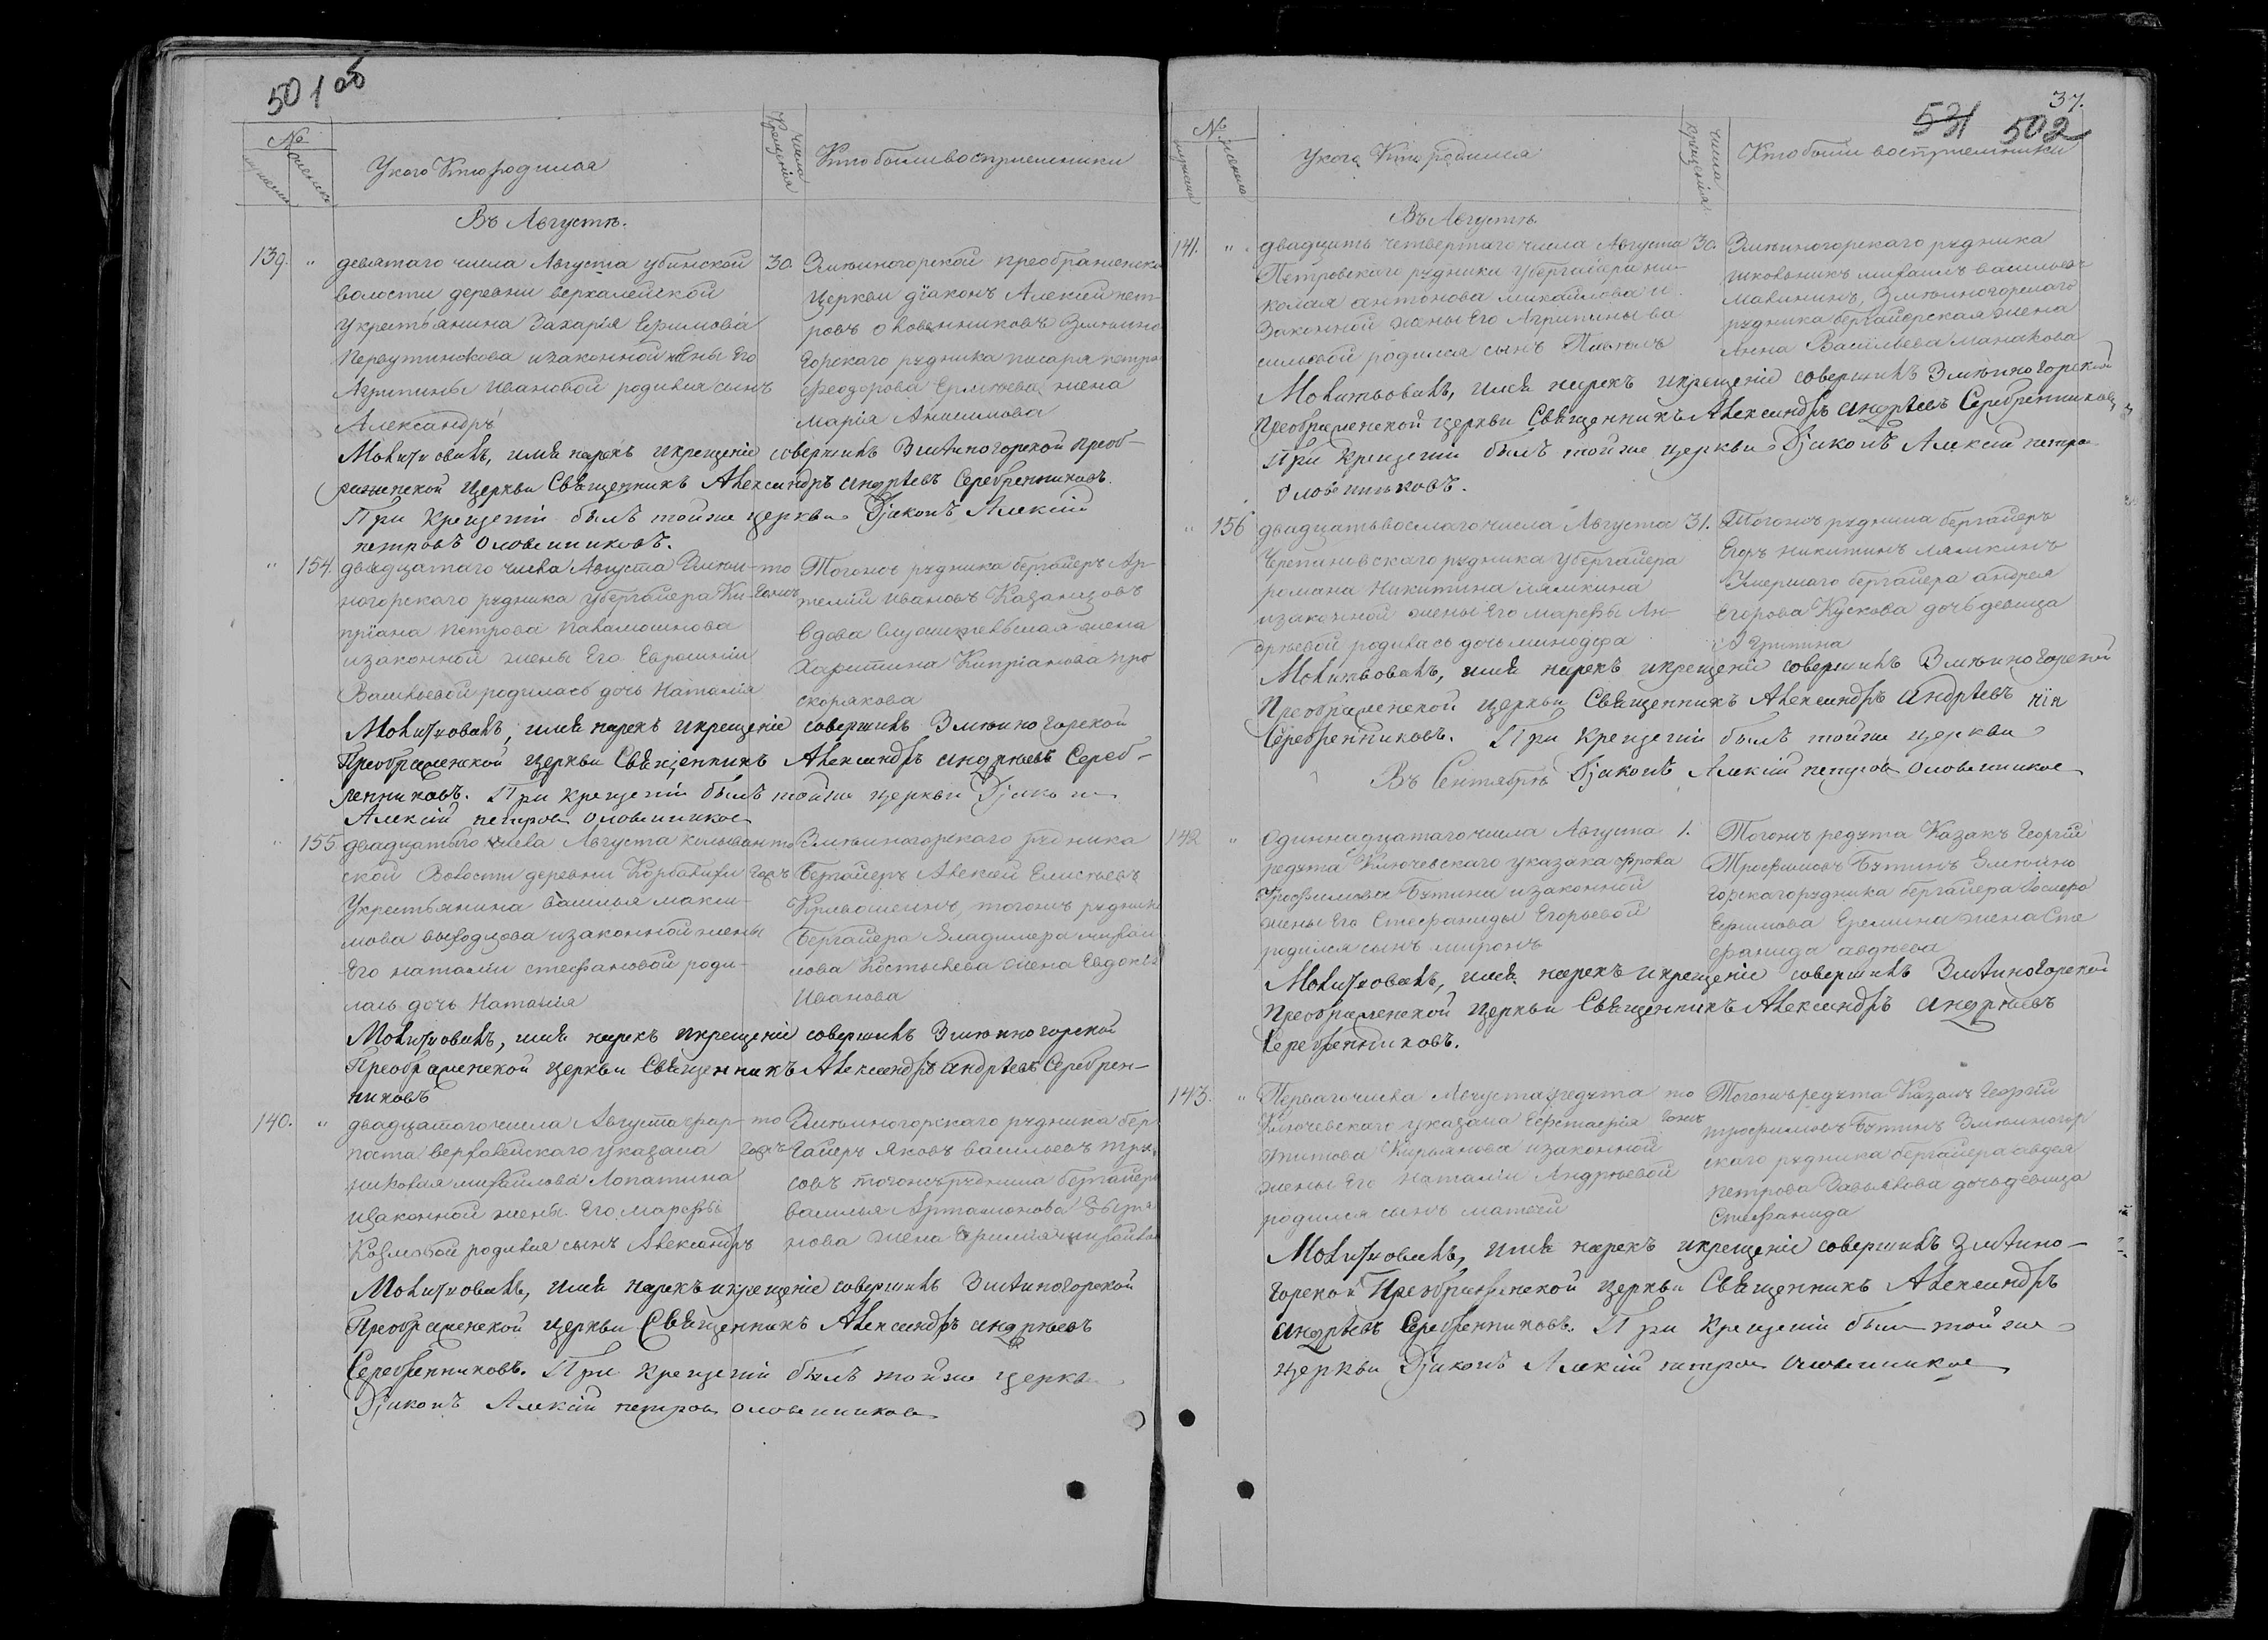 501 об
№
мужеска
женска
У кого Кто родился
Числа Крещенія
Кто были воспріемники
Въ Августѣ.
139. " девятаго числа Августа убинской 30.
волости деревни верхалейской
Укрестьянина Захарія Ефимова
и законной жены Его
Агрипины Ивановой родился сынъ
Александръ
Змѣиногорской преображенско
Церкви діаконъ Алексій пет-
ровъ оловянниковъ Змѣино
горскаго рудника писаря петра
феодорова жена
Марія Анисимова
Молитвовалъ, имя нарекъ и крещеніе совершилъ Змѣиногорской преоб-
раженской Церкви Священникъ Александръ андрѣевъ Серебренниковъ.
При крещеніи былъ тойже церкви Діаконъ Алексій
петровъ оловянниковъ.
" 154. двадцатаго числа Августа Змѣи- то
ногорскаго рудника убергайера Ки- гожъ
пріана Петрова
и законной жены Его Евросиніи
Васильевой родилась дочь Наталія
Тогожъ рудника бергайеръ Ар-
темій Ивановъ Казанцовъ
вдова служительская жена
Харитина Кипріанова про
скорякова
Молитвовалъ, имя нарекъ и крещеніе совершилъ Змѣиногорской
Преображенской церкви Священникъ Александръ андрѣевъ Сереб-
ренниковъ. При крещеніи былъ тойже церкви Діаконъ
Алексій петровъ оловянниковъ
" 155 двадцатаго числа Августа колыван то
ской Волости деревни Корболихи гожъ
Укрестьянина василья макси-
мова выходцова и законной жены
Его наталіи стефановой роди-
лась дочь Наталія
Змѣиногорскаго рудника
Бергайеръ Алексѣй Елисѣевъ
Кривошеинъ, тогожъ рудника
Бергайера Владимера михаи
лова Костылева жена Евдокія
Иванова
Молитвовалъ, имя нарекъ и крещеніе совершилъ Змѣиногорской
Преображенской церкви Священникъ Александръ андрѣевъ Серебрен-
никовъ
140. " двадцатаго числа Августа фар- то
поста верхалейскаго указака гожъ
николая михайлова Лопатина
и законной жены Его Марѳы
Козминой родился сынъ Александръ
Змѣиногорскаго рудника бер
гайеръ Яковъ васильевъ
совъ тогожъ рудника бергайера
василья Артамонова
нова жена
Молитвовалъ, имя нарекъ и крещеніе совершилъ Змѣиногорской
Преображенской церкви Священникъ Александръ андрѣевъ
Серебренниковъ. При крещеніи былъ тойже церкви
Діаконъ Алексій петровъ оловянниковъ
37.
531 502
№
мужеска
женска
У кого Кто родился
Числа крещенія
Кто были воспріемники
Въ Августѣ.
141. " двадцать четвертаго числа Августа 30.
Петровскаго рудника убергайера ни-
колая антонова михайлова и
Законной жены Его Агрипины ва
сильевой родился сынъ Павелъ
Змѣиногорскаго рудника
школьникъ михаилъ васильевъ
Малининъ, Змѣиногорскаго
рудника бергайерская жена
Анна Васильева Манакова
Молитвовалъ, имя нарекъ и крещеніе совершилъ Змѣиногорской
преображенской церкви Священникъ Александръ андрѣевъ Серебренниковъ
При крещеніи былъ тойже церкви Діаконъ Алексій петро
оловянниковъ.
" 156 двадцать восмаго числа Августа 31.
Черепановскаго рудника убергайера
романа Никитина лямкина
и законной жены Его марѳы Ан-
дрѣевой родилась дочь минодора
Тогожъ рудника бергайеръ
Егоръ никитинъ лямкинъ
Умершаго бергайера андрея
Егорова Кускова дочь девица
Агрипина
Молитвовалъ, имя нарекъ и крещеніе совершилъ Змѣиногорской
Преображенской церкви Священникъ Александръ андрѣевъ
Серебренниковъ. При крещеніи былъ тойже церкви
Въ Сентябрѣ Діаконъ Алексій петровъ оловянников
142 " Одиннадцатаго числа Августа 1.
редута Ключевскаго указака фрола
Трофимова Бутина и законной
жены Его Стефаниды Егорьевой
родился сынъ миронъ
Тогожъ редута Казакъ Георгій
Трофимовъ Бутинъ Змѣино
горскаго рудника бергайера
Ефимова Еремина жена Сте
фанида авдѣева
Молитвовалъ, имя нарекъ и крещеніе совершилъ Змѣиногорской
Преображенской Церкви Священникъ Александръ андрѣевъ
Серебренниковъ.
143. " Перваго числа Августа редута то
Ключевскаго указака Евстафія гожъ
Титова Кирьянова и законной
жены Его Наталіи Андрѣевой
родился сынъ матвей
Тогожъ редута Казакъ Георгій
трофимовъ Бутинъ Змѣиногор
скаго рудника бергайера авдея
петрова Завьялова дочь девица
Стефанида
Молитвовалъ, имя нарекъ и крещеніе совершилъ Змѣино-
горской Преображенской церкви Священникъ Александръ
андрѣевъ Серебренниковъ. При крещеніи былъ тойже
церкви Діаконъ Алексій петров оловянников